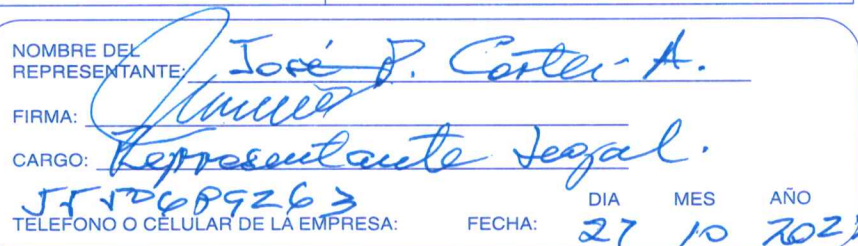 NOMBRE DEL
REPRESENTANTE: José P. Cortés A.
FIRMA:
CARGO: Representante Legal.
5550689263
TELEFONO O CELULAR DE LA EMPRESA: FECHA: DIA MES AÑO
27 10